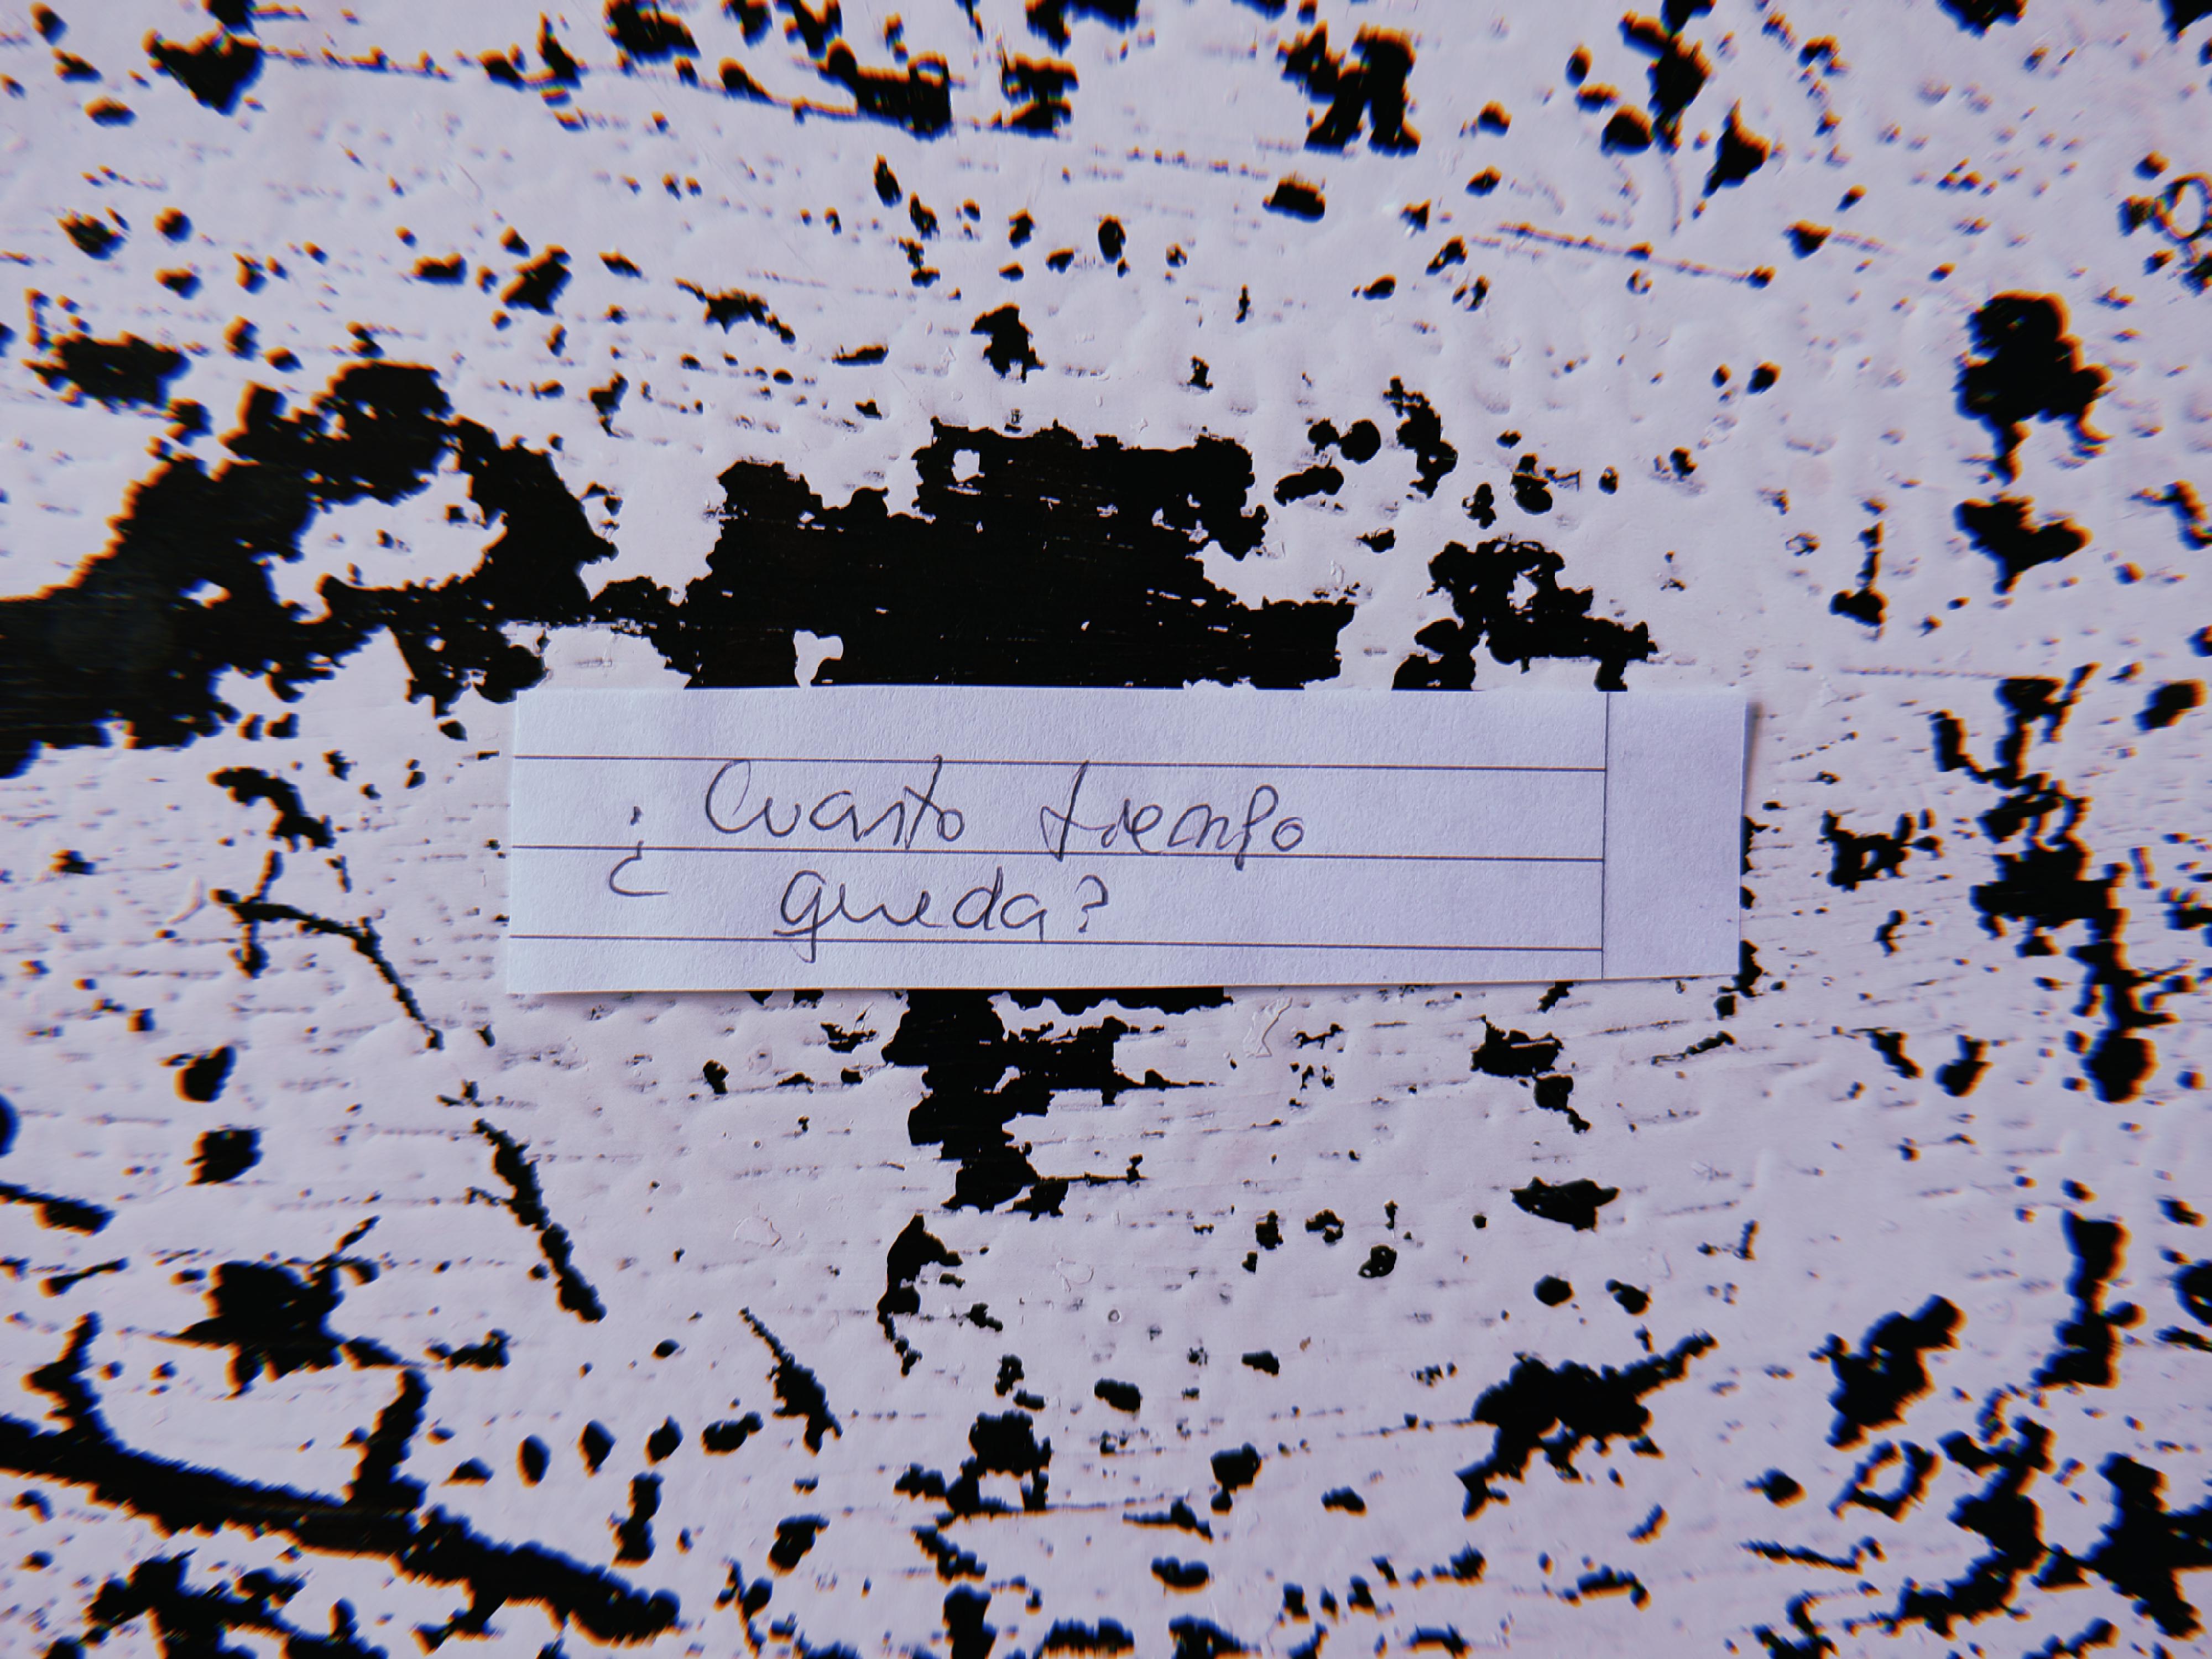 ¿Cuanto tiempo
queda?